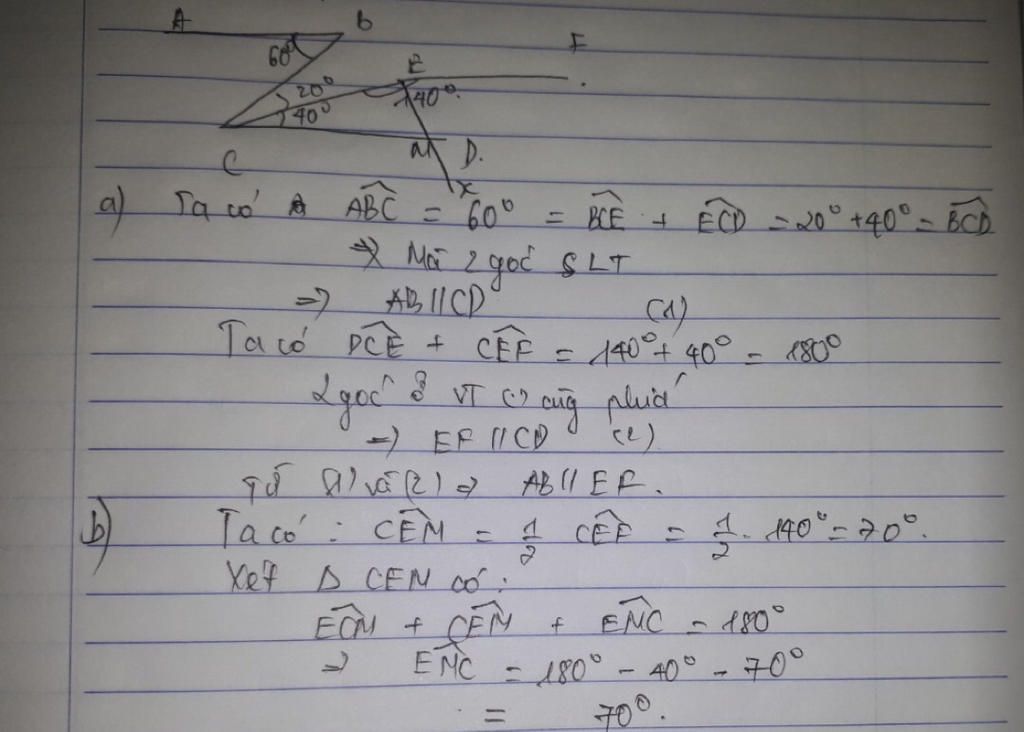 A B
60°
E F
20°
40° 140°.
C M D.
x
a) Ta có ABC = 60° = BCE + ECD = 20° + 40° = BCD
=> Mà 2 góc SLT
=> AB // CD (1)
Ta có DCE + CEF = 140° + 40° = 180°
2 góc ở VT (.) cùg phiá
=> EF // CD (2)
Từ (1) và (2) => AB // EF.
b) Ta có : CEM = 1/2 CEF = 1/2 . 140° = 70°.
Xét Δ CEM có :
ECM + CEM + EMC = 180°
=> EMC = 180° - 40° - 70°
= 70°.